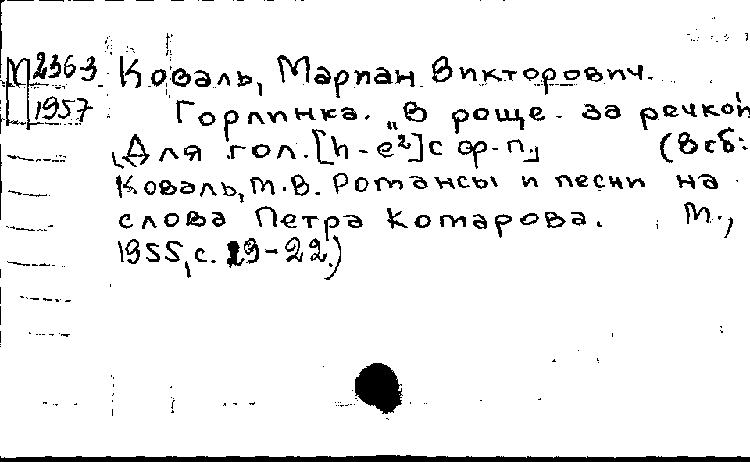 М 236-3 Коваль, Мариан Викторович.
1957 Горлинка. „В роще за речкой
„Для гол. [h - e²] с ф-п.„ (В сб:
Коваль, М.В. Романсы и песни на
слова Петра Комарова. М.,
1955, с. 19-22.)